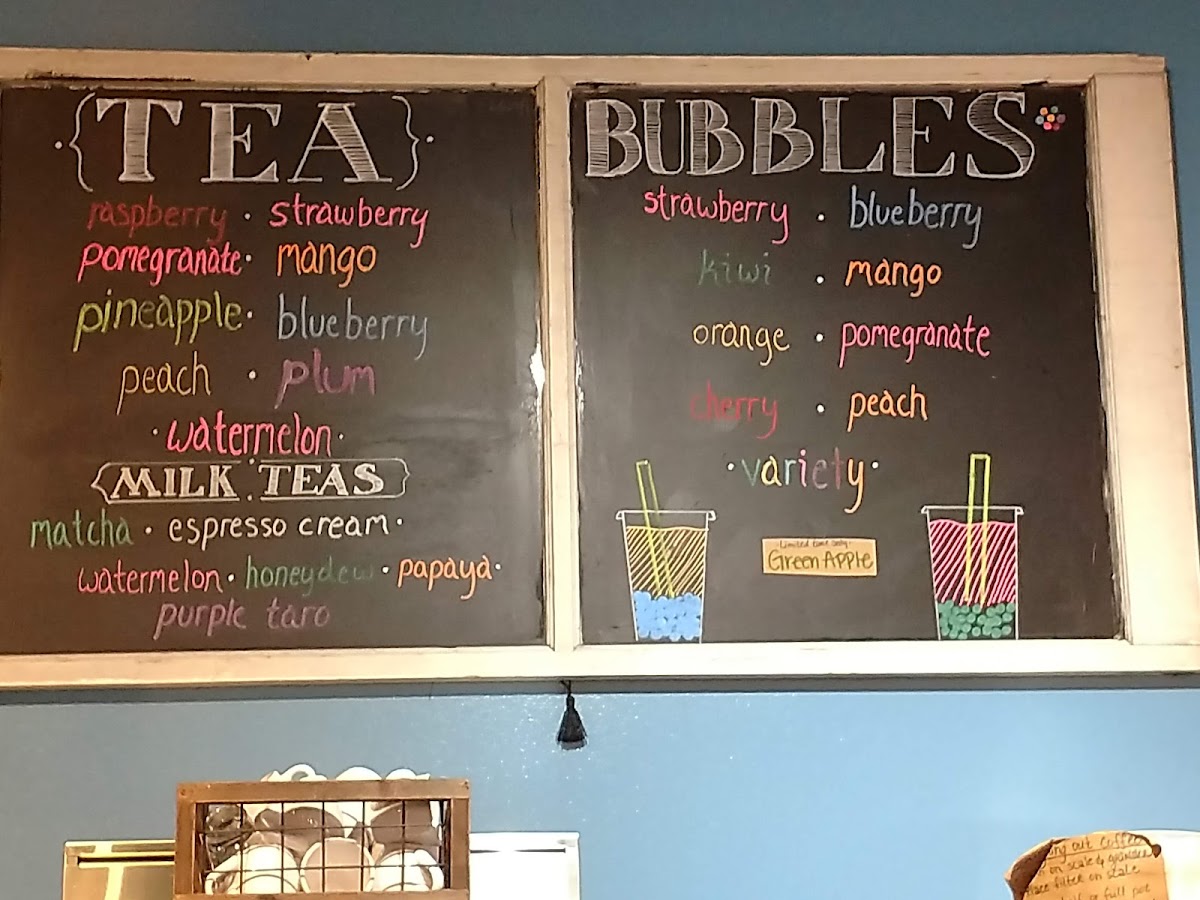 {TEA}
raspberry · strawberry
pomegranate · mango
pineapple · blueberry
peach · plum
· watermelon ·
{MILK TEAS}
matcha · espresso cream ·
watermelon · honeydew · papaya ·
purple taro
BUBBLES
strawberry · blueberry
kiwi · mango
orange · pomegranate
cherry · peach
· variety ·
Limited time only:
Green Apple
out coffee
on scale &
filter on scale
full pot